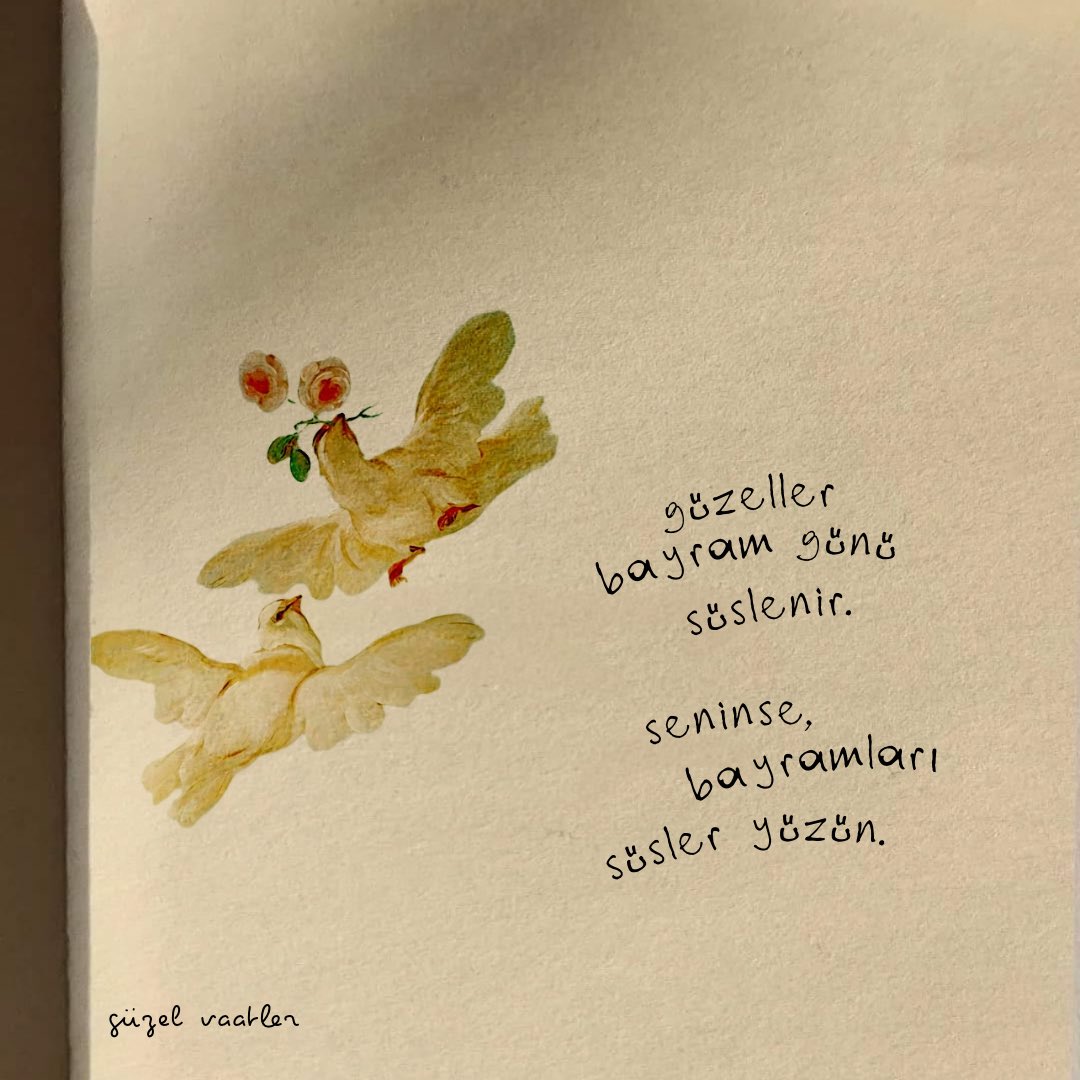 güzeller
bayram günü
süslenir.
seninse,
bayramları
süsler yüzün.
güzel vaatler